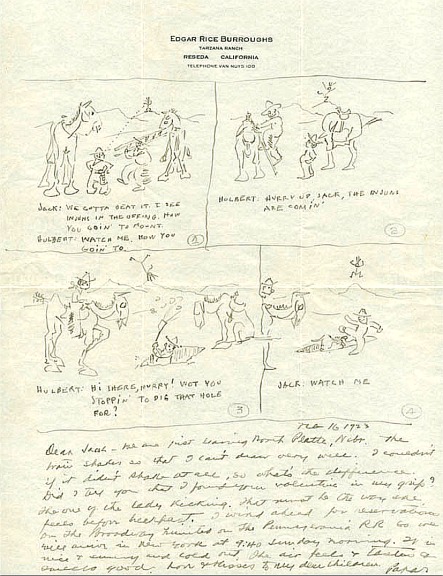 EDGAR RICE BURROUGHS
TARZANA RANCH
RESEDA CALIFORNIA
TELEPHONE VAN NUYS 100
JACK: WE GOTTA BEAT IT. I SEE
INJUNS IN THE OFFING. HOW
YOU GOIN' TO MOUNT.
HULBERT: WATCH ME. HOW YOU
GOIN' TO.
1
HULBERT: HURRY UP JACK, THE INJUNS
ARE COMIN'
2
HULBERT: HI THERE, HURRY! WOT YOU
STOPPIN' TO DIG THAT HOLE
FOR?
3
JACK: WATCH ME
4
Feb 16 1923
Dear Jack - We are just leaving North Platte, Nebr. The
train shakes so that I can't draw very well. I couldn't
if it didn't shake at all, so what's the difference.
Did I tell you that I found your valentine in my grip?
The one of the lady kicking. That must be the way one
feels before breakfast. I wired ahead for reservation
on the Broadway Limited on the Pennsylvania RR so we
will arrive in New York at 9:40 Sunday morning. It is
nice & sunny and cold out. The air feels & tastes &
smells good. Love & kisses to my dear children Papa